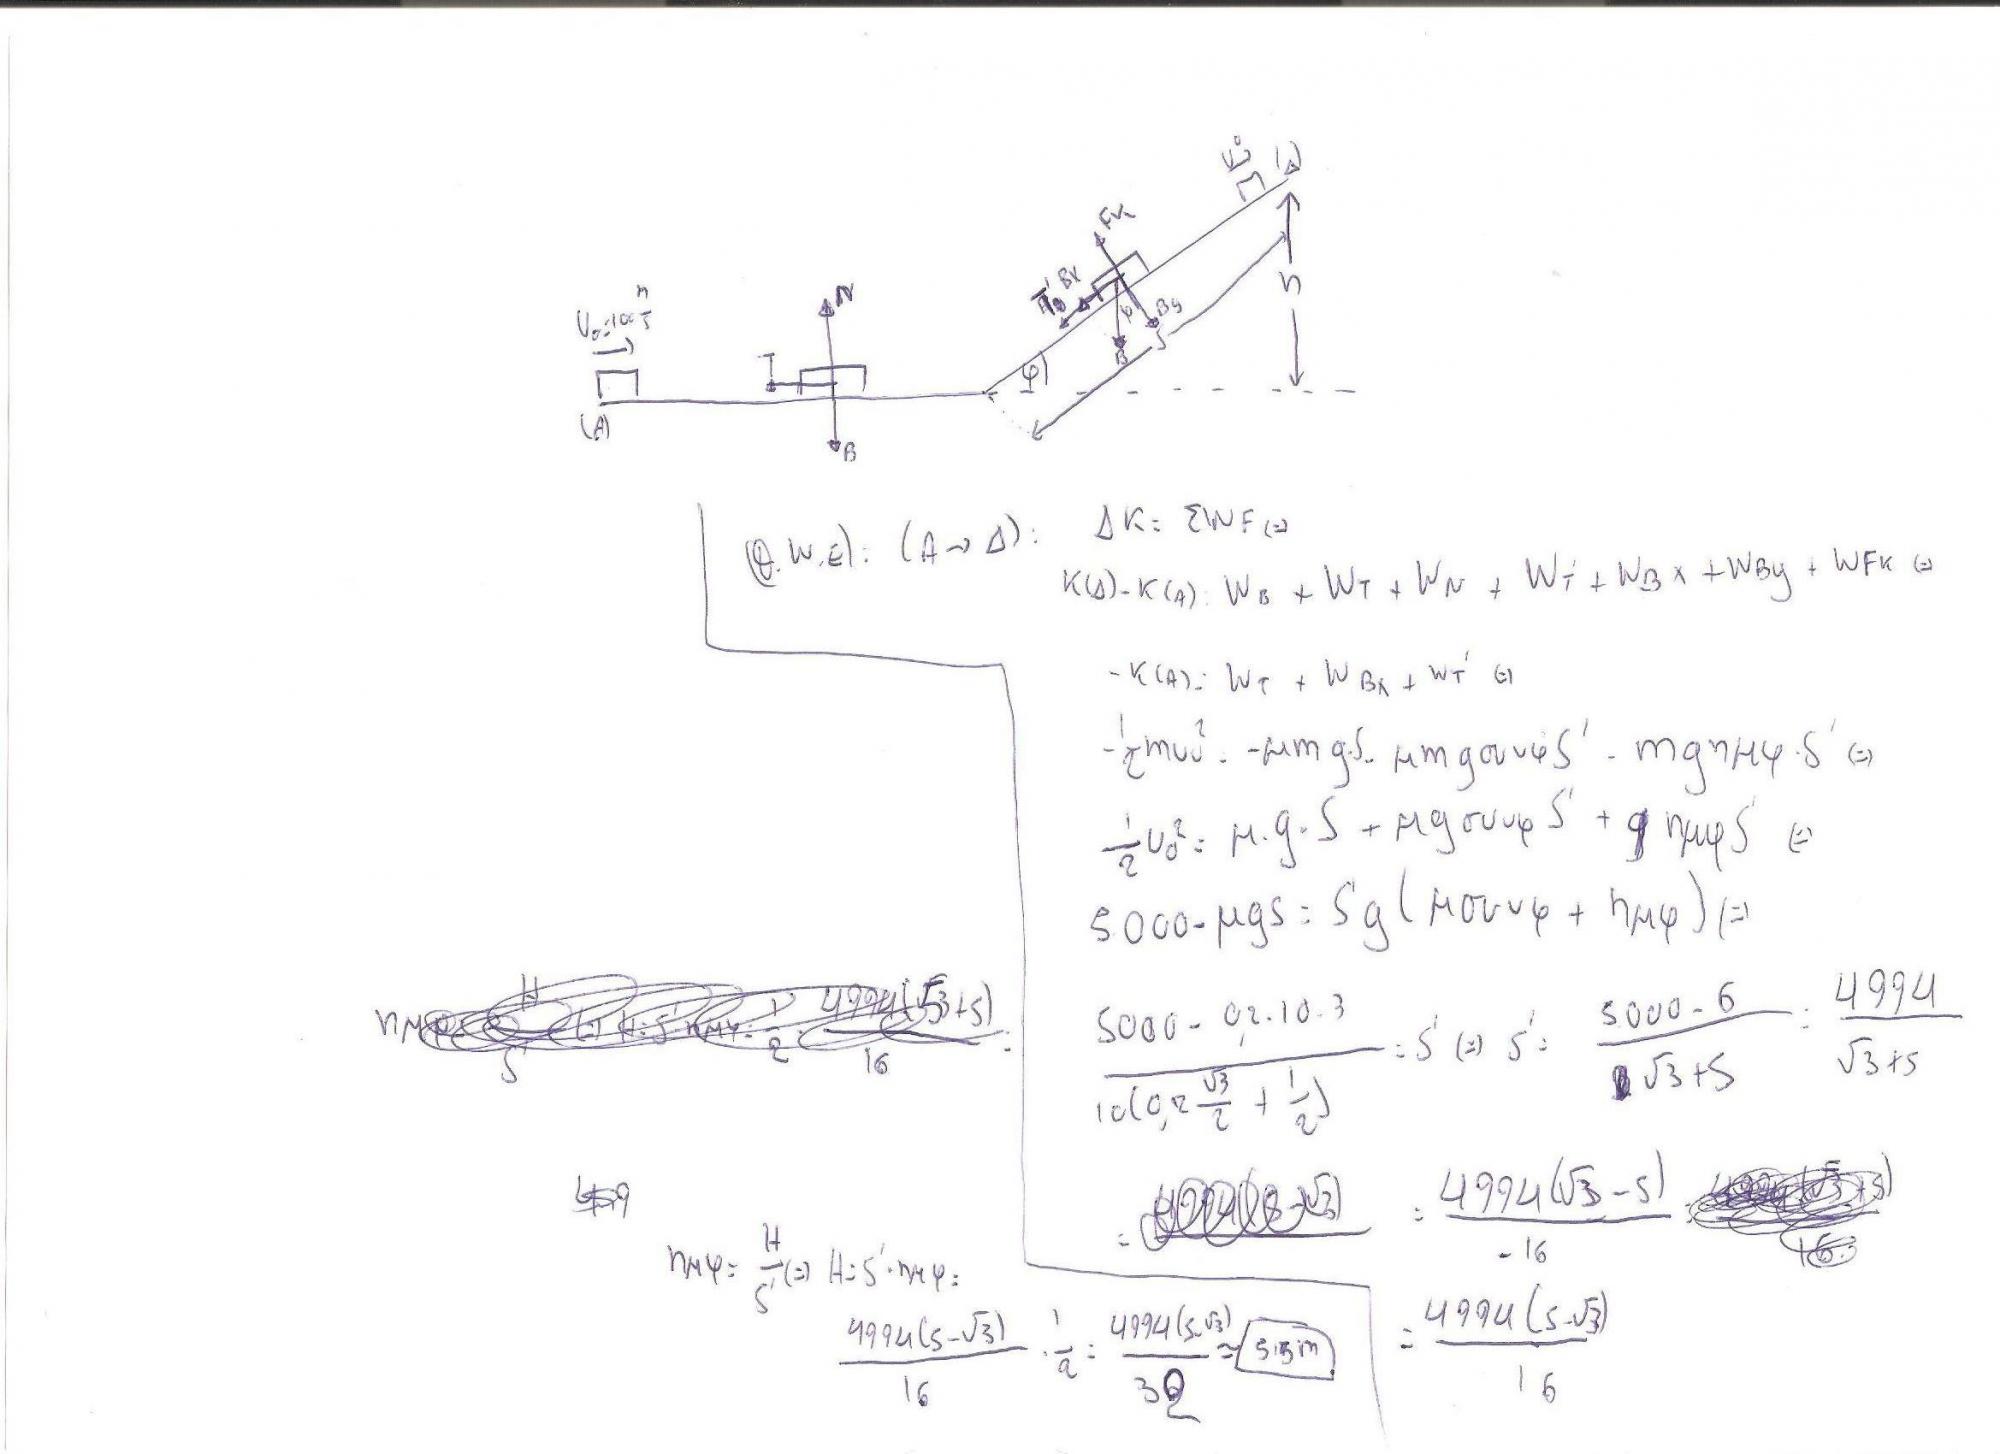 (Δ)
Fk
Bx
By
B
S
h
φ
N
T
B
U₀=100 m/s
(A)
Θ.W.E): (A→Δ): ΔK= ΣWF(=)
K(Δ)-K(A): W_B + W_T + W_N + W_T' + W_Bx + W_By + W_Fk (=)
-K(A)= W_T + W_Bx + W_T' (=)
-1/2 mυ₀² = -μmgS - μmgσυνφS' - mgημφ·S' (=)
1/2 υ₀² = μ.g.S + μgσυνφS' + gημφS' (=)
5000-μgS = S'g(μσυνφ + ημφ)(=)
(5000-0,2.10.3)/(10(0,2 √3/2 + 1/2)) = S' (=) S' = (5000-6)/(√3+5) = 4994/(√3+5)
= 4994(√3-5)/-16
= 4994(5-√3)/16
ημφ= H/S' (=) H=S'.ημφ=
4994(5-√3)/16 . 1/2 = 4994(5-√3)/32 ≈